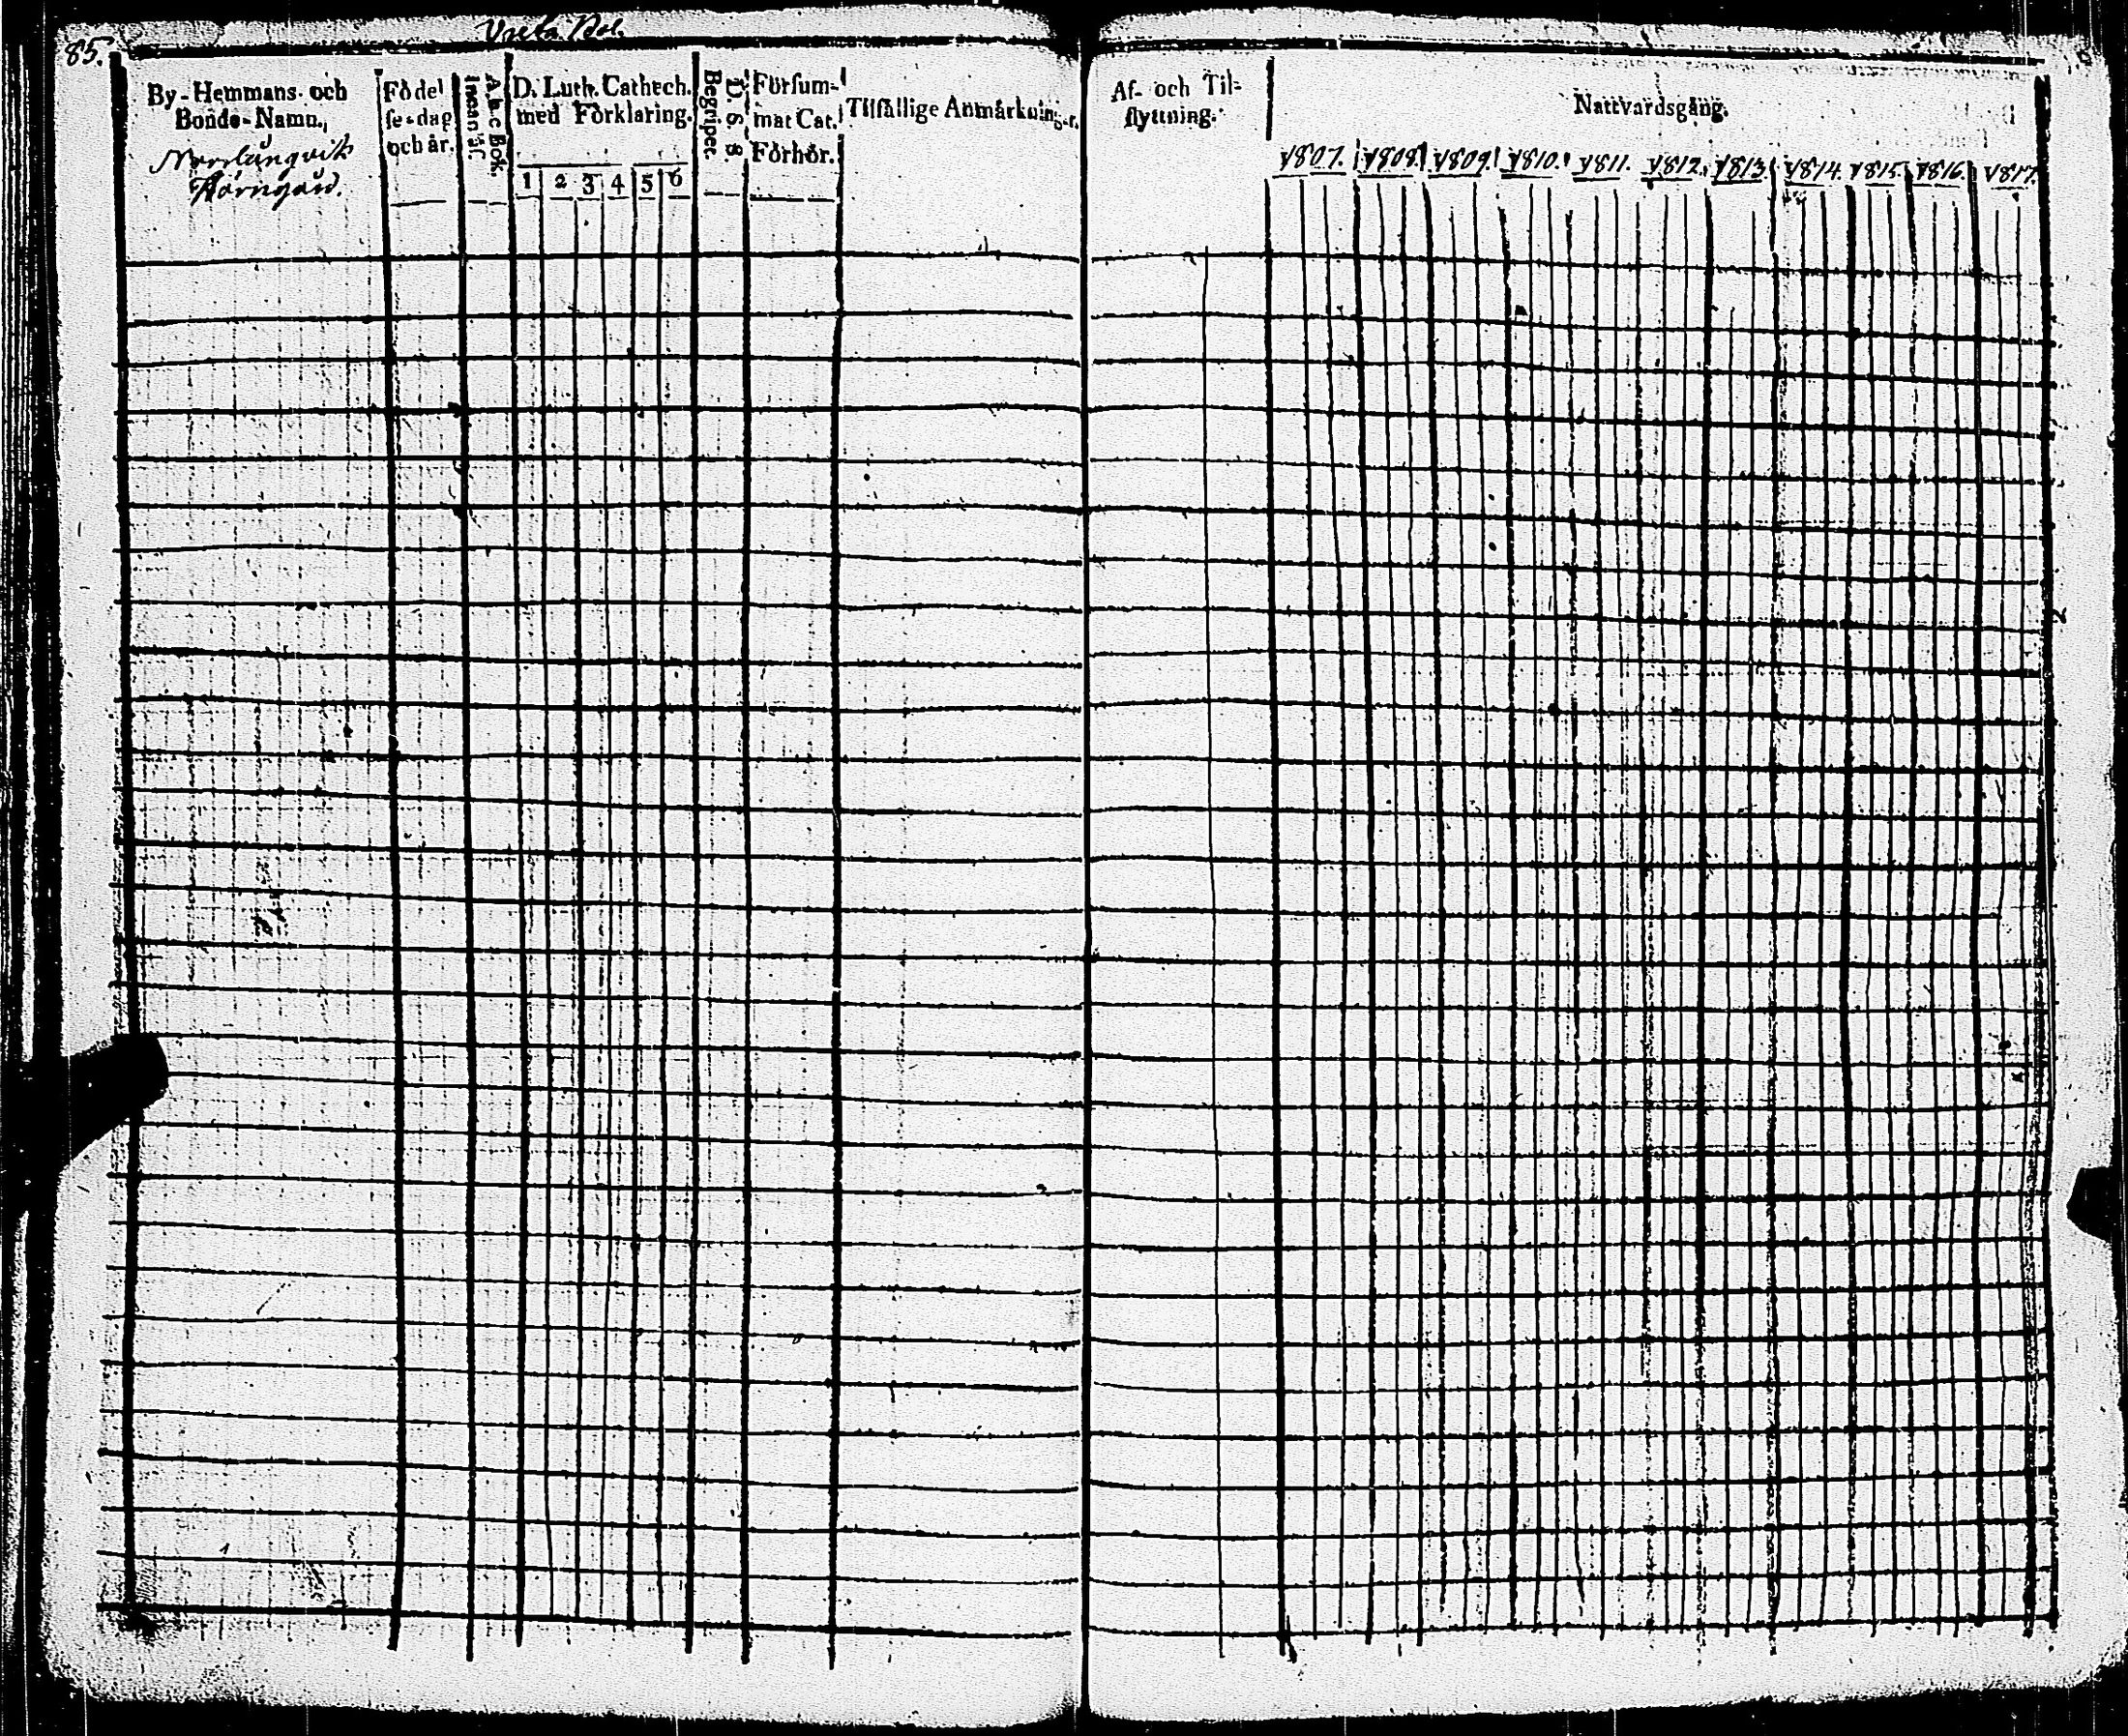 85.
Vreta Bol.
By-Hemmans- och
Bonde-Namn.
Norrlångvik
Födel
se-dag
och år.
A. b. c Bok.
Innan läs.
D. Luth. Cathech.
med Förklaring.
1 2 3 4 5 6
D. 6. 8.
Begripet.
Försum-
mat Cat.
Förhör.
Tilfällige Anmärkningar.
Af- och Til-
flyttning.
Nattvardsgång.
1807. 1808. 1809. 1810. 1811. 1812. 1813. 1814. 1815. 1816. 1817.